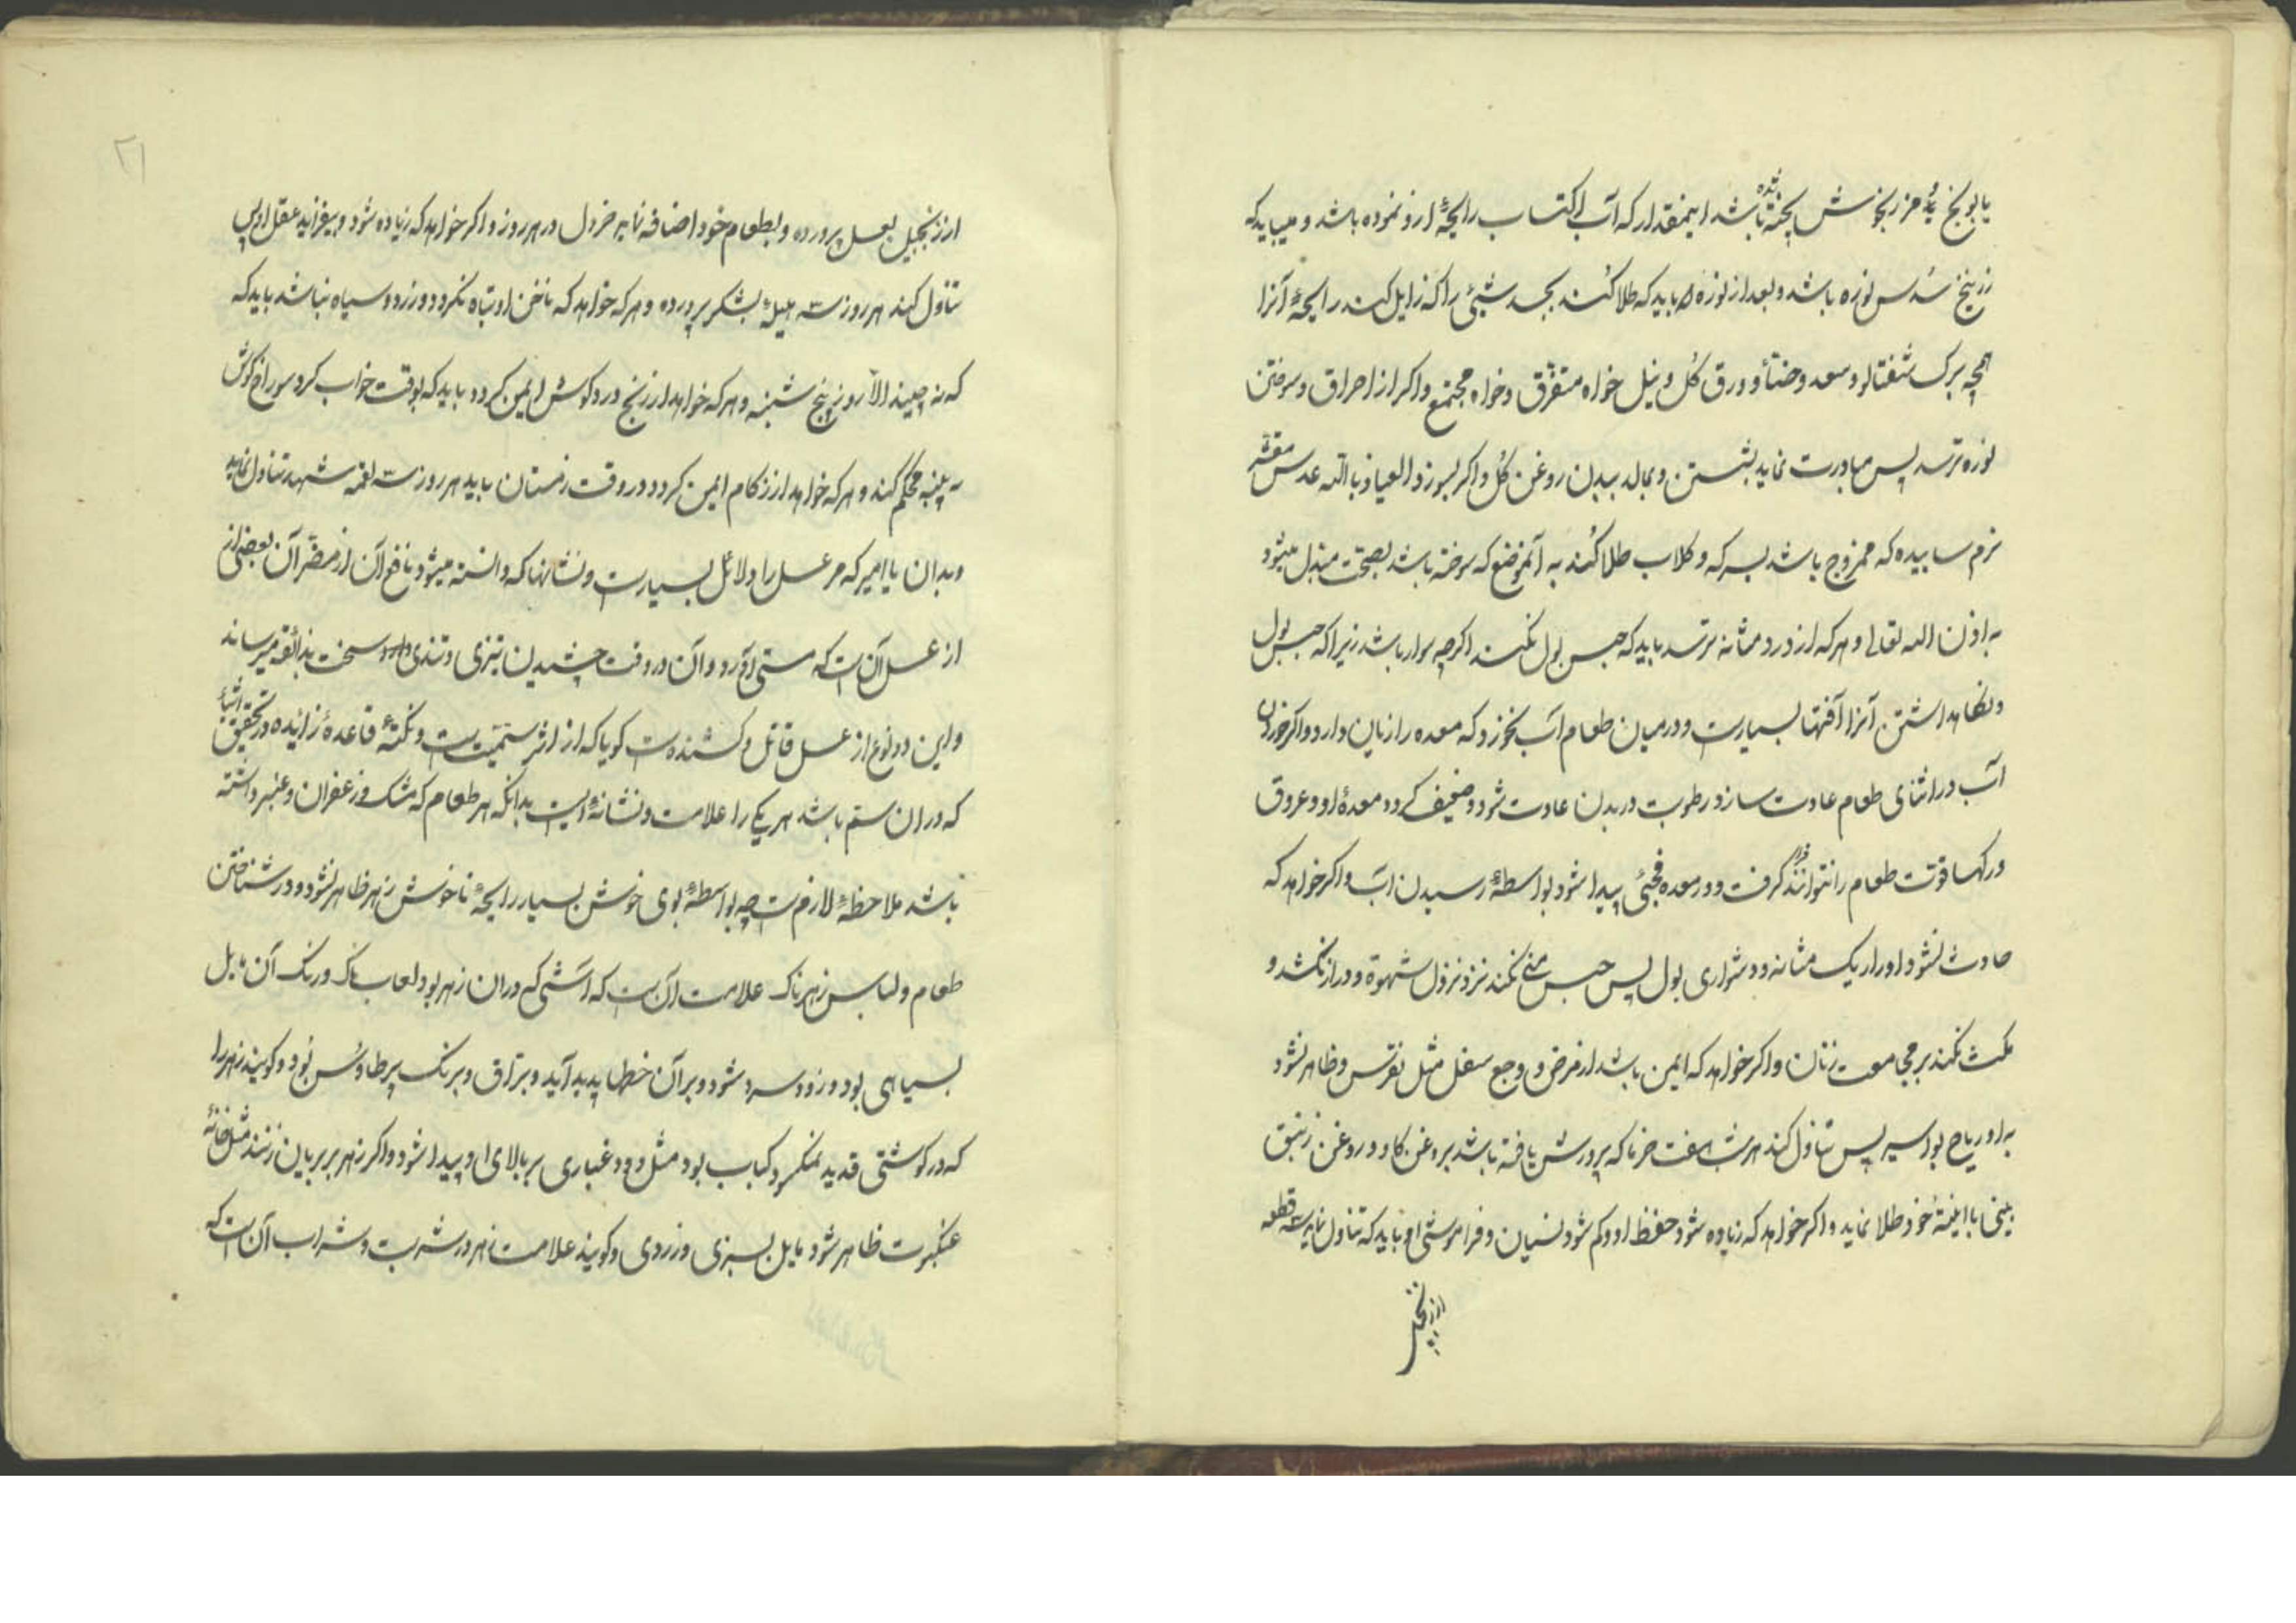 بابونج و مرزنجوش پخته شده باشد اینمقدار که آب اکتساب رایحهٔ ازو نموده باشد و میباید که
زرنیخ سُدس نوره باشد و بعد از نوره باید که طلا کند بجسد شیئی را که زایل کند رایحهٔ آنرا
همچه برک شفتالو و سعد و حنأ و ورق کُل و نیل خواه متفرّق و خواه مجتمع و اکر از احراق و سوختن
نوره ترسد پس مبادرت نماید بشستن و بمالد ببدن روغن کُل و اکر بسوزد العیاذ بالله عدس مقشّر
نرم ساییده که ممزوج باشد بسرکه و کلاب طلا کُند به آنموضع که سوخته باشد بصحّت مبدّل میشود
به اذن الله تعالی و هرکه از درد مثانه ترسد باید که حبس بول نکند اکرچه سوار باشد زیرا که حبس بول
و نکاهداشتن آنرا آفتها بسیارست و در میان طعام آب نخورد که معده را زیان دارد و اکر خوردن
آب در اثنای طعام عادت سازد رطوبت در بدن عادت شود و ضعیف کردد معدهٔ او و عروق
و رکها قوّت طعام را نتوانند کرفت و در معده فجّئی پیدا شود بواسطهٔ رسیدن آب و اکر خواهد که
حادث نشود او را ریک مثانه و دشواری بول پس حبس منی نکند نزد نزول شهوة و دراز نکشد و
مکث نکند بر مجامعت زنان و اکر خواهد که ایمن باشد از مرض و وجع سفل مثل نقرس و ظاهر نشود
به او ریاح بواسیر پس تناول کند هر شب هفت خرما که پرورش یافته باشد بروغن کاو و روغن زنبق
بینی با خود طلا نماید و اکر خواهد که زیاده شود حفظ او و کم شود نسیان و فراموشی او باید که تناول نماید سه قطعه
از زنجبیل
۲۱
از زنجبیل بعسل پرورده و بطعام خود اضافه نماید خردل در هر روز و اکر خواهد که زیاده شود و بیفزاید عقل او پس
تناول کند هر روز سه هلیلهٔ بشکر پرورده و هرکه خواهد که ناخن او تباه نکردد و زرد و سیاه نباشد باید که
که نه چیند الّا روز پنج شنبه و هرکه خواهد از رنج درد کوش ایمن کردد باید که بوقت خواب کردن سوراخ کوش
به پنبه محکم کند و هرکه خواهد از زکام ایمن کردد در وقت زمستان باید هر روز سه لقمه شهد تناول نماید
و بدان یا امیر که مر عسل را دلائل بسیارست و نشانها که دانسته میشود نافع آن از مضرّ آن بعضی از
از عسل آن است که مستی آورد و آن در وقت چشیدن تیزی و تندی سخت بذائقه میرساند
و این دو نوع از عسل قاتل و کشنده ست کویا که از اثر سمّیت ست و نکتهٔ قاعدهٔ زائیده در تحقیق اشیأ
که در آن ستم باشد هریکی را علامت و نشانهٔ ایست بدانکه هر طعام که مشک و زعفران و عنبر داشته
باشد ملاحظهٔ لازم ست چه بواسطهٔ بوی خوش بسیار رایحهٔ ناخوش زهر ظاهر نشود و در شناختن
طعام و لباس زهرناک علامت آن ست که آشی که در آن زهر بود لعاب ناک و رنک آن مایل
بسیاهی بود و زود سرد شود و بر آن خطها پدید آید و براق و برنک پر طاوُس بُود و کویند زهر را
که در کوشتی قدید نمکسود کباب بود مثل دود غباری بر بالای او پیدا شود و اکر زهر بر بریان زنند مثل خانهٔ
عنکبوت ظاهر شود مایل بسبزی و زردی و کویند علامت زهر در شربت و شراب آن ست که